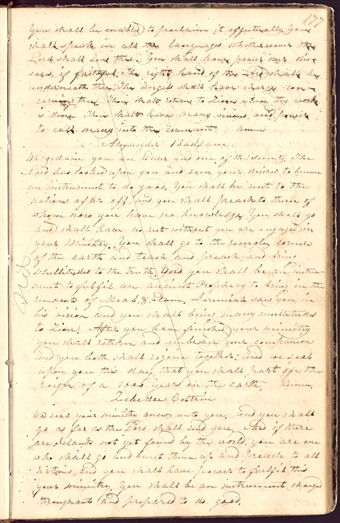 177
You shall be enabled to proclaim it effectually, you
shall speak in all the languages whithersoever the
Lord shall send thee. You shall have power over dis-
eases, if faithful. The right hand of the Lord shall be
underneath thee, the Angels shall have charge con-
cerning thee. Thou shalt return to Zion when thy work
is done. Thou shalt have many visions and power
to call many into the covenant amen
Alexander Badlam
We ordain you an Elder and one of the seventy. The
Lord has looked upon you and seen your desires to become
an instrument to do good. You shall be sent to the
nations afar off and you shall preach to those of
whom now you have no knowledge. You shall go
and shall have no rest without you are engaged in
your Ministry. You shall go to the remote corners
of the earth and teach and preach and bring
Multitudes to the truth, and you shall be an instru-
ment to fulfil an ancient Prophecy to bring in the
remnants of Jeremiah saw you in
his vision and you shall bring many multitudes
to Zion. After you have finished your ministry
you shall return and embrace your companion
and you both shall rejoice together, and we seal
upon you this day that you shall part for the
reign of a 1000 years on the earth. Amen
Zerubbabel
We seal your ministry anew unto you, and you shall
go as far as the Lord shall send you. And if there
are Islands not yet found by the world, you are one
who shall go and hunt them up and preach to all
nations, and you shall have power to fulfil this
your ministry. You shall be an instrument changed
throughout and prepared to do good.